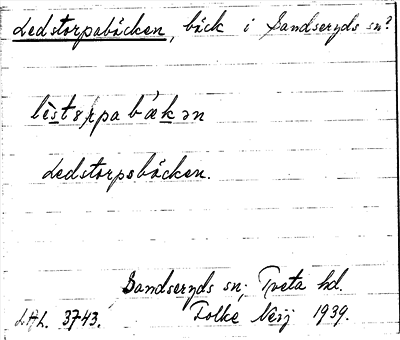 Ledstorpabäcken, bäck i Sandseryds sn?
lèstårpa bäkən
Ledstorpsbäcken.
Sandseryds sn; Tveta hd.
3743. Folke Neij 1939.